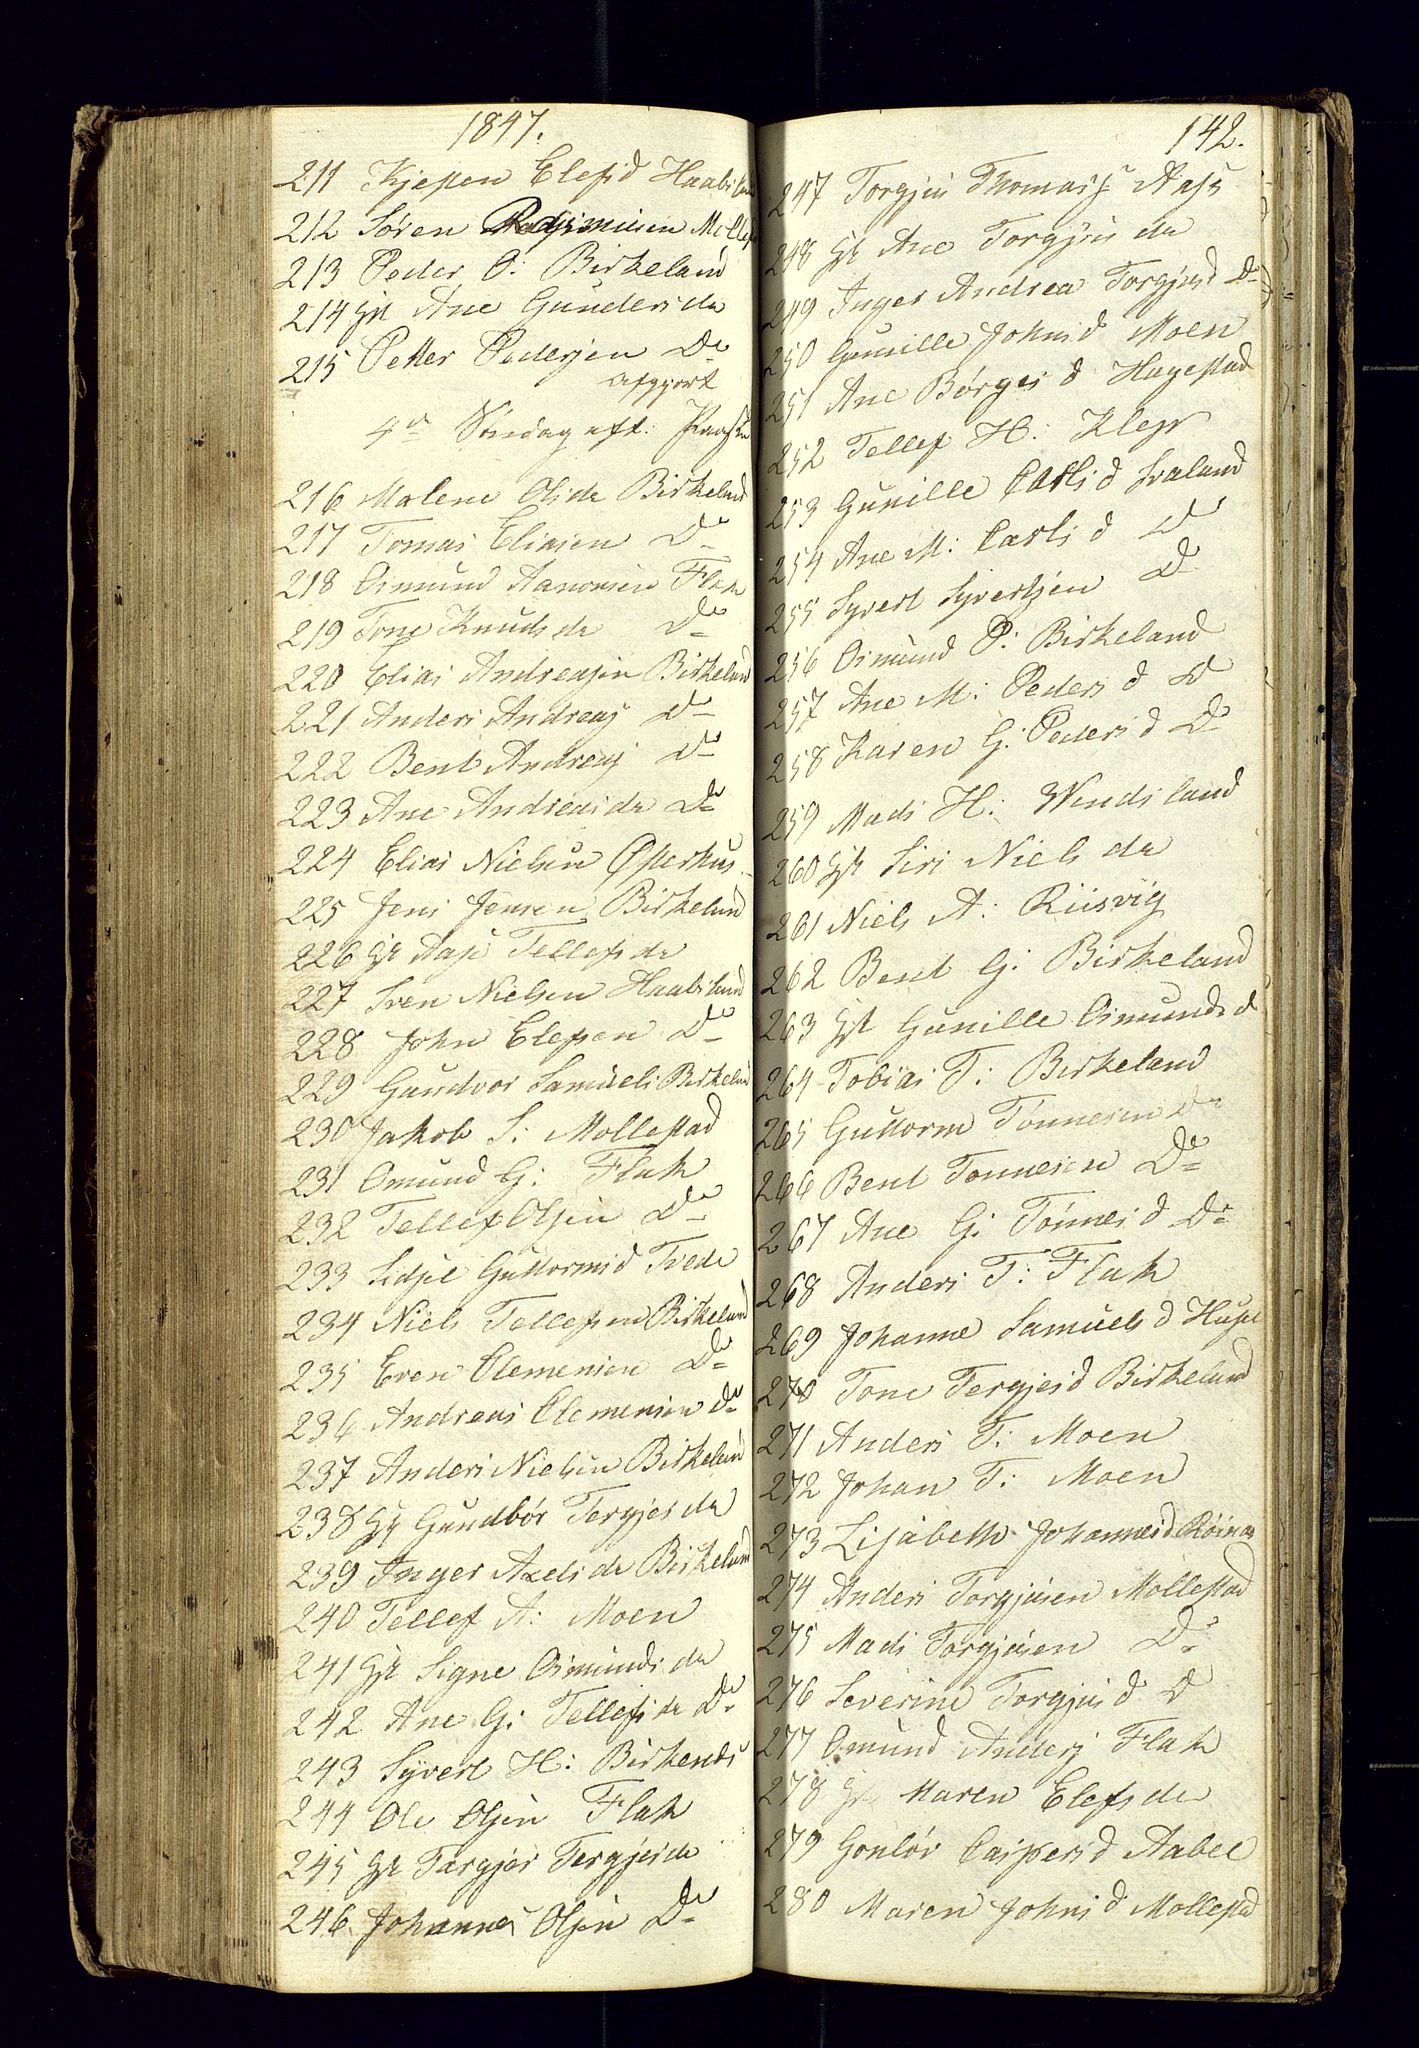 1847.
211 Kjesten Elefsd Haabesland
212 Søren Mollestad
213 Peder O: Birkeland
214 Gst Ane Gundersda
215 Petter Pedersen Do
Afgjort
4de Söndag eft: Paaske
216 Malene Olsda Birkeland
217 Tomas Eliasen Do
218 Osmund Aanonsen Flak
219 Tone Knudsda Do
220 Elias Andreasen Birkeland
221 Anders Andreas Do
222 Bent Andreas Do
223 Ane Andreasda Do
224 Elias Nielsen Østerhus
225 Jens Jensen Birkeland
226 Gst Aase Tellefsda
227 Sven Nielsen Haabesland
228 John Elefsen Do
229 Gundvor Samuels Birkeland
230 Jakob S: Mollestad
231 Omund G: Flak
232 Tellef Olsen Do
233 Sidsel Guttormsd Tvede
234 Niels Tellefsen Birkeland
235 Even Clemensen Do
236 Andreas Clemensen Do
237 Anders Nielsen Birkeland
238 Gst Gundbör Tergjesda
239 Inger Axelsda Birkeland
240 Tellef A: Moen
241 Gst Signe Osmundsda
242 Ane G: Tellefsda Do
243 Syvert H: Birkends
244 Ole Olsen Flak
245 Gst Targjer Tergjesda
246 Johannes Olsen Do
142.
247 Torgjus Thomas Aase
248 Gst Ane Torgjusda
249 Inger Andrea Torgjusd Do
250 Gunille Johnsd Moen
251 Ane Børges d Hagestad
252 Tellef H: Klep
253 Gunille Carlsd Svaland
254 Ane M: Carlsd Do
255 Syvert Syvertsen Do
256 Osmund P: Birkeland
257 Ane M: Pedersd Do
258 Karen G: Pedersd Do
259 Mads H: Windsland
260 Gst Siri Nielsda
261 Niels A: Riisvig
262 Bent G: Birkeland
263 Gst Gunille Osmundsd
264 Tobias T: Birkeland
265 Guttorm Tönnesen Do
266 Bent Tonnesen Do
267 Ane G: Tönnesd Do
268 Anders T: Flak
269 Johanne Samuelsd
270 Tone Tergjesd Birkeland
271 Anders T: Moen
272 Johan T: Moen
273 Lisabeth Johannesd
274 Anders Torgjusen Mollestad
275 Mads Torgjusen Do
276 Severine Torgjusd Do
277 Omund Anders Flak
278 Gst Maren Elefsda
279 Gonlör Caspersd Aabel
280 Maren Johnsd Mollestad